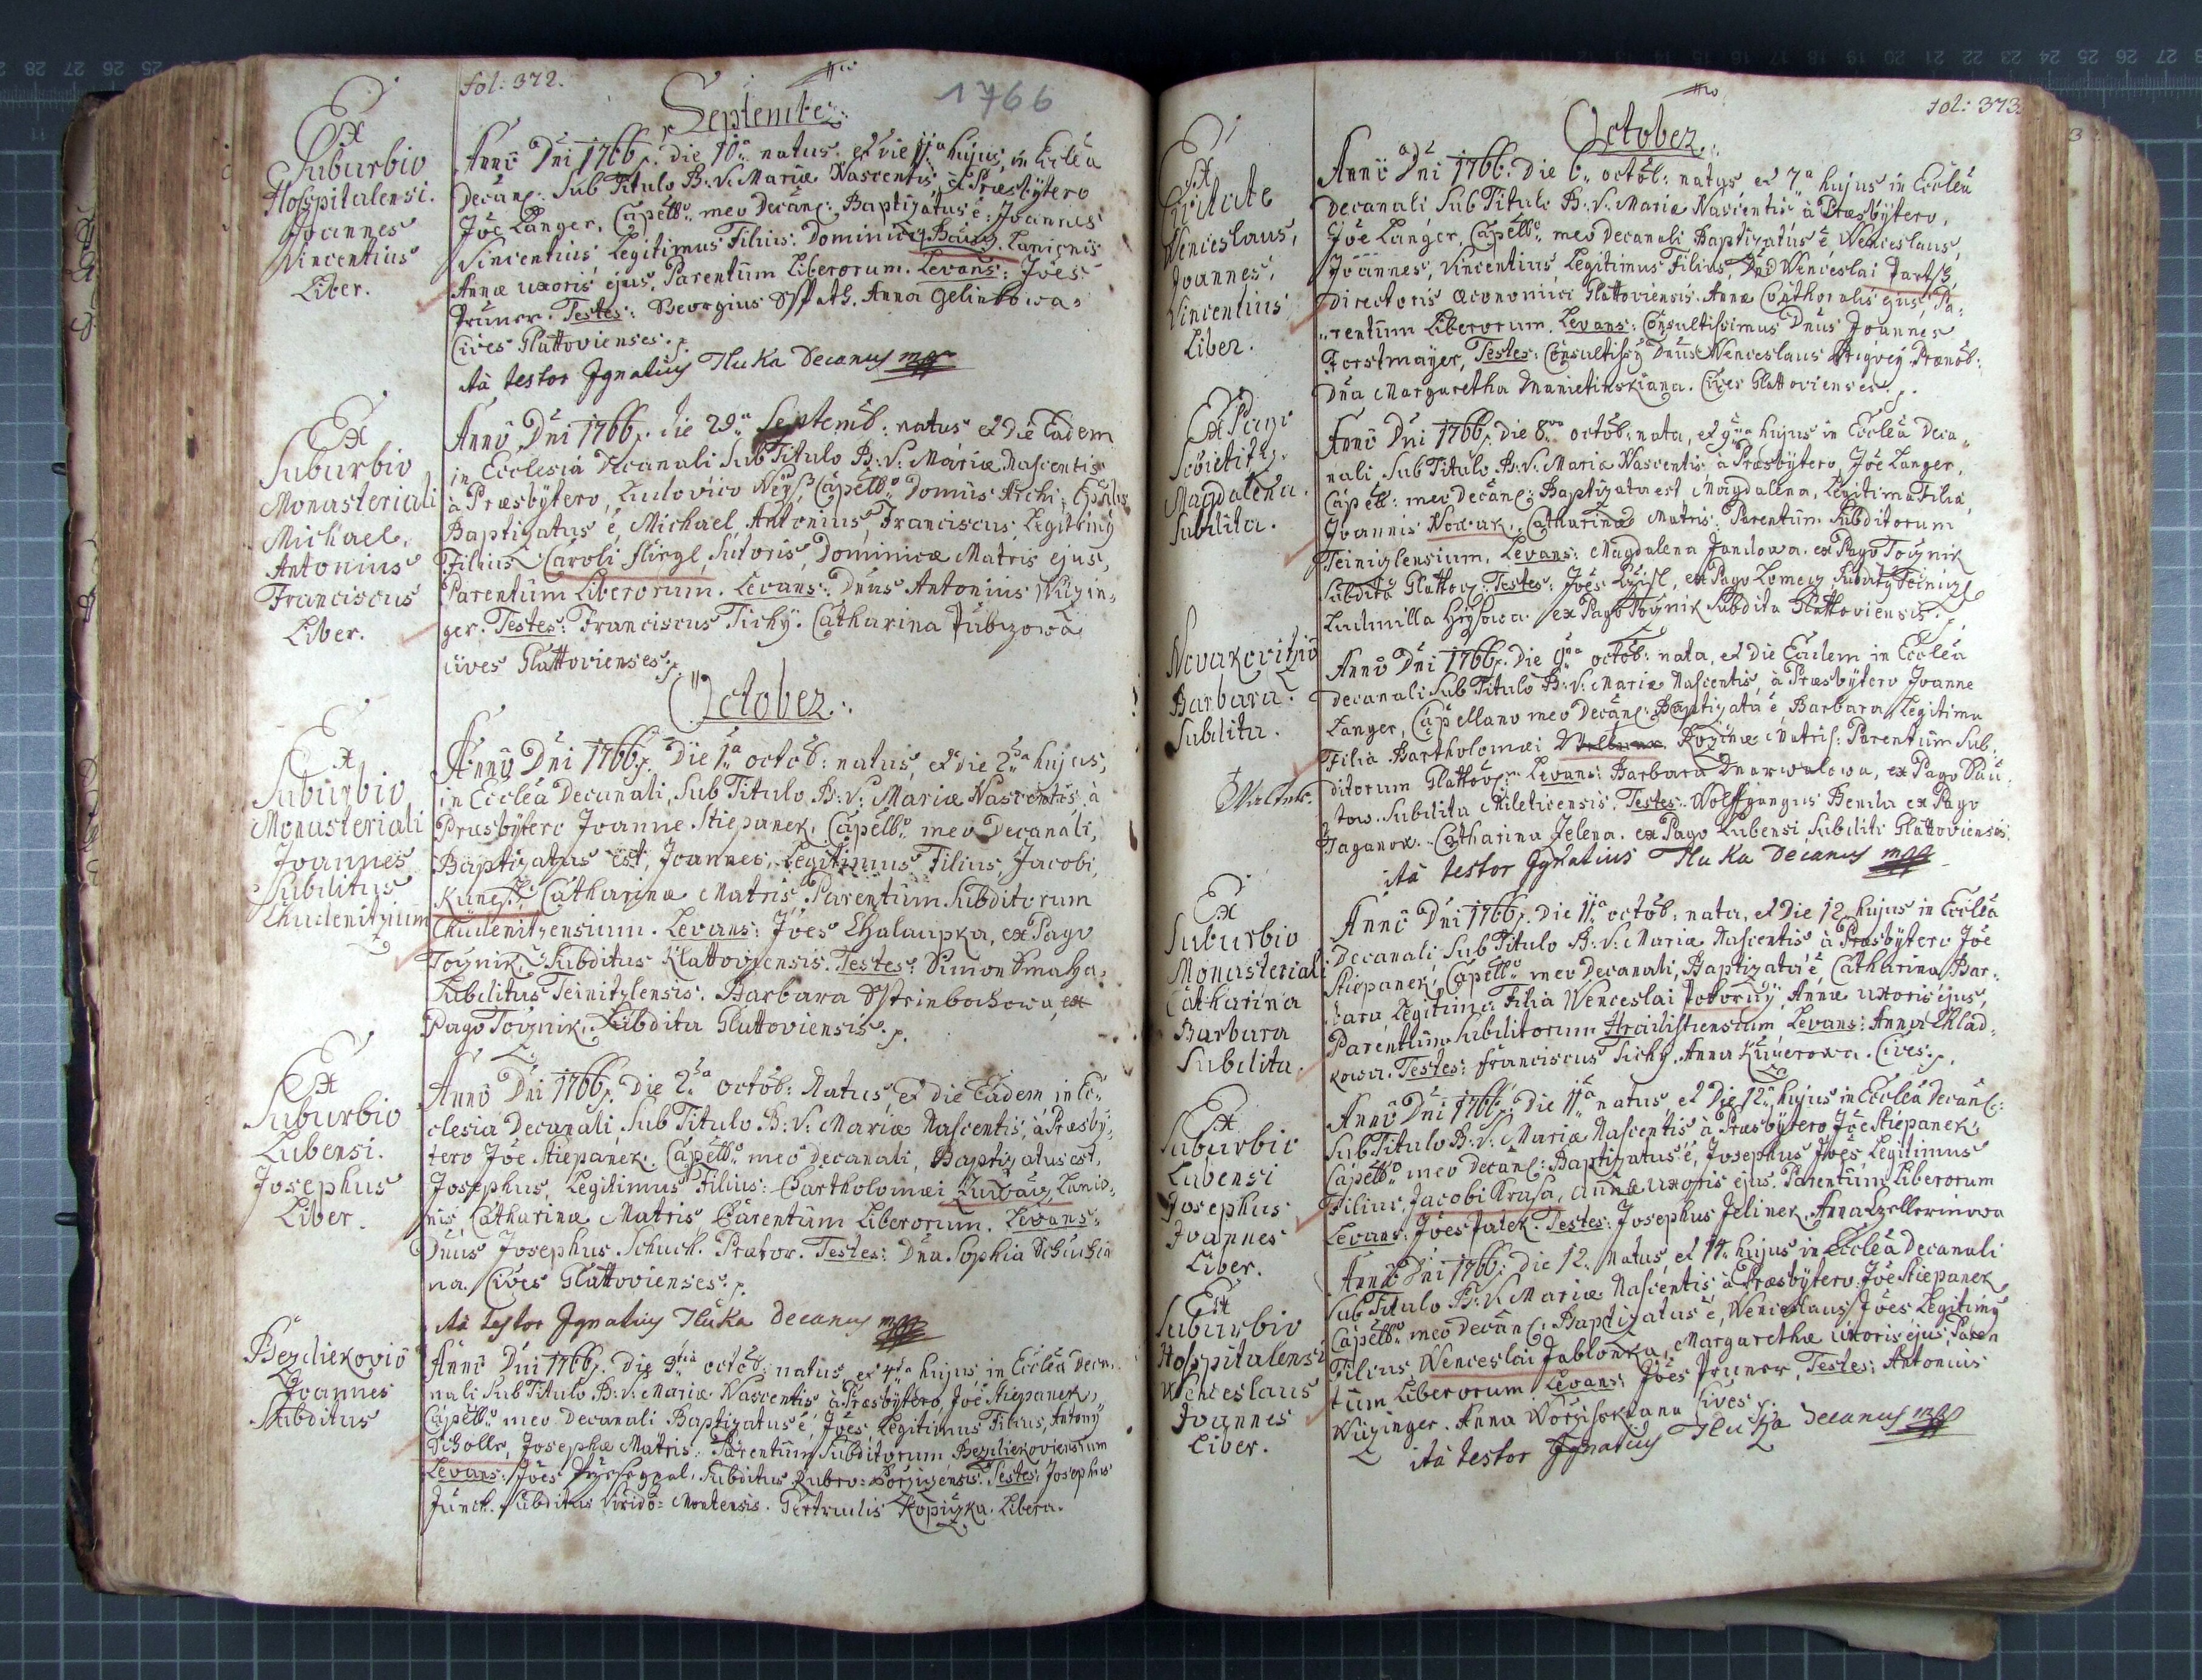 fol: 372.
1766
September.
Ex
Suburbio
Hosspitalensi.
Joannes
Vincentius
Liber.
Anno Dni 1766. die 10. natus. et die 11a hujus, in Eccleâ
Decanl: Sub Titulo B: V: Mariæ Nascentis, à Præsbÿtero
Jôe Langer, Capello meo Decanl: Baptizatus ê: Joannes
Vincentius Legitimus Filius: Dominici Lanionis
Annæ uxoris ejus, Parentum Liberorum. Levans: Jôes
Pruner. Testes: Georgius Spath. Anna Gelinkowa.
Cives Glattovienses.
ità testor Jgnatius Hluka Decanus mpp
Ex
Suburbio
Monasteriali
Michael,
Antonius
Franciscus
Liber.
Anno Dni 1766. die 29a Septemb: natus et die Eadem
in Ecclesia Decanali Sub Titulo B: V: Mariæ Nascentis
à Præsbÿtero, Ludovico Capello Domûs Archi:
Baptizatus ê, Michael, Antonius, Franciscus, Legitimus
Filius Caroli Sutoris, Dominicæ Matris ejus,
Parentum Liberorum. Levans: Dnus Antonius Wuzin,
ger. Testes: Franciscus Tichÿ. Catharina
cives Glattovienses.
October.
Ex
Suburbio
Monasteriali
Joannes
Subditus
Chudenitzium
Anno Dni 1766. Die 1a octob: natus, et die 2da hujus,
in Eccleâ Decanali, Sub Titulo B: V: Mariæ Nascentis, à
Præsbÿtero Joanne Stiepanek, Capello meo Decanali,
Baptizatus est, Joannes, Legitimus Filius, Jacobi,
Catharinæ Matris, Parentum Subditorum
Chudenitzensium. Levans: Jôes Chalaupka, ex Pago
Toÿnik, Subditus Klattoviensis. Testes: Simon Smaha,
Subditus Teinitzlensis. Barbara ex
Pago Toÿnik. Subdita Glattoviensis.
Ex
Suburbio
Lubensi.
Josephus
Liber.
Anno Dni 1766. Die 2da octob: Natus et die Eadem in Ec,
clesia Decanali Sub Titulo B: V: Mariæ Nascentis, à Præsbÿ,
tero Jôe Stiepanek, Capello meo decanali, Baptizatus est,
Josephus, Legitimus Filius: Bartholomæi Lanio,
nis, Catharinæ Matris Parentum Liberorum. Levans:
Dnus Josephus Schuch. Prætor. Testes: Dna Sophia Schuchia
na. Cives Glattovienses.
ità testor Jgnatius Hluka Decanus mpp
Bezdiekovio
Joannes
Subditus
Anno Dni 1766. Die 3tia octob: natus et 4ta hujus in Eccleâ Deca,
nali Sub Titulo B: V: Mariæ Nascentis à Præsbÿtero, Jôe Stiepanek,
Capello meo Decanali Baptizatus ê, Jôes, Legitimus Filius, Antonÿ
Scholle, Josephæ Matris. Parentum Subditorum Bezdiekoviensium
Levans: Jôes Subditus Rubro=Porzizensis. Testes: Josephus
Junck. Subditus Viridô=Montensis. Gertrudis Kopiczka. Libera.
fol: 373.
October.
Ex
Civitate
Wenceslaus,
Joannes,
Vincentius
Liber.
Anno Dni 1766. die 6. octob: natus et 7a hujus in Eccleâ
Decanali Sub Titulo B: V: Mariæ Nascentis à Præsbÿtero,
Jôe Langer, Capello meo Decanali Baptizatus ê, Wenceslaus,
Joannes, Vincentius Legitimus Filius, Dni Wenceslai
Directoris œconomici Glattoviensis. Annæ Conthoralis ejus, Pa,
rentum Liberorum, Levans: Consultissimus Dnus Joannes
Forstmayer, Testes: Consultissÿ Dnus Wenceslaus Prænob:
Dna Margaretha Cives Glattovienses.
Ex Pago
Magdalena.
Subdita.
Anno Dni 1766. Die 8va octob: nata, et 9na hujus in Eccleâ Deca,
nali, Sub Titulo B: V: Mariæ Nascentis à Præsbÿtero, Jôe Langer,
Capell: meo Decanl: Baptizata est, Magdalena, Legitima Filia,
Joannis Nowak, Catharinæ Matris, Parentum Subditorum
Teinizlensium, Levans: Magdalena Jandowa. ex Pago Toÿnik
Subdita Glattov: Testes: Jôes ex Pago Lomecz, Subditÿ Teinizl
Ludmilla ex Pago Toÿnik Subdita Glattoviensis.
Novakovitzio
Barbara.
Subdita.
Anno Dni 1766. Die 9na octob: nata, et die Eadem in Eccleâ
Decanali Sub Titulo B: V: Mariæ Nascentis, à Præsbÿtero Joanne
Langer, Capellano meo Decanl: Baptizata ê Barbara, Legitima
Filia Bartholomæi Rozinæ Matris: Parentum Sub,
ditorum Glattov: Levans: Barbara ex Pago
Subdita Mileticensis. Testes: Wolffgangus Benda ex Pago
Taganow. Catharina Jelena. ex Pago Lubensi Subditi Glattovienses.
ità testor Jgnatius Hluka Decanus mpp
Ex
Suburbio
Monasteriali
Catharina
Barbara
Subdita.
Anno Dni 1766. Die 11a octob: nata, et Die 12. hujus in Eccleâ
Decanali Sub Titulo B: V: Mariæ Nascentis à Præsbÿtero Jôe
Stiepanek, Capello meo Decanali, Baptizata ê, Catharina, Bar,
bara, Legitima Filia Wenceslai Annæ uxoris ejus,
Parentum Subditorum Levans: Anna Chlad,
kowa. Testes: Franciscus Tichÿ. Anna Kucerowa. Cives.
Ex
Suburbio
Lubensi
Josephus
Joannes
Liber.
Anno Dni 1766. die 11a natus et Die 12. hujus in Eccleâ Decanl:
Sub Titulo B: V: Mariæ Nascentis à Præsbÿtero Jôe Stiepanek,
Capello meo Decanl: Baptizatus ê, Josephus Jôes Legitimus
Filius, Jacobi Krasa, Annæ uxoris ejus, Parentum Liberorum
Levans: Jôes Testes: Josephus Jelinek. Anna
Ex
Suburbio
Hosspitalensi
Wenceslaus
Joannes
Liber.
Anno Dni 1766. die 12. natus, et 14. hujus in Eccleâ Decanali
Sub Titulo B: V: Mariæ Nascentis à Præsbÿtero: Jôe Stiepanek,
Capello meo Decanl: Baptizatus ê, Wenceslaus, Jôes Legitimÿ
Filius Wenceslai Jablonka, Margarethæ uxoris ejus, Paren
tum Liberorum Levans: Jôes Pruner, Testes: Antonius
Wuzinger. Anna Cives.
ità testor Jgnatius Hluka Decanus mpp